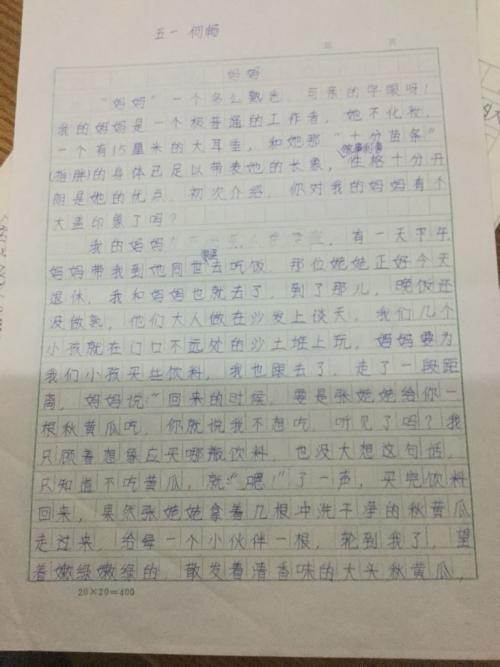 五一 何畅
妈妈
“妈妈”一个多么熟悉、可亲的字眼呀！
我的妈妈是一个极普通的工作者，她不化妆，
一个有15厘米的大耳垂，和她那“十分苗条”
的身体已足以带表她的长象，性格十分开
朗是她的优点，初次介绍，你对我的妈妈有个
大盖印象了吗？
我的妈妈 有一天下午，
妈妈带我到她同世家去吃饭，那位姥姥正好今天
退休，我和妈妈也就去了，到了那儿，晚饭还
没做熟，他们大人做在沙发上谈天，我们几个
小孩就在门口不远处的沙土堆上玩，妈妈要为
我们小孩买些饮料，我也跟去了，走了一段距
离，妈妈说：“回来的时候，要是张姥姥给你一
根秋黄瓜吃，你就说我不想吃，听见了吗？我
只顾着想象应买哪瓶饮料，也没大想这句话，
只知道不吃黄瓜，就“嗯！”了一声，买完饮料
回来，果然张姥姥拿着几根冲洗干净的秋黄瓜
走过来，给每一个小伙伴一根，轮到我了，望
着嫩绿嫩绿的，散发着清香味的大头秋黄瓜，
20×20=400